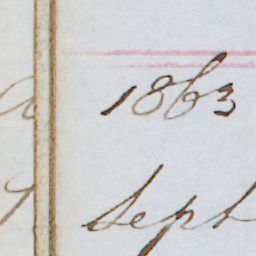 1863
Sept